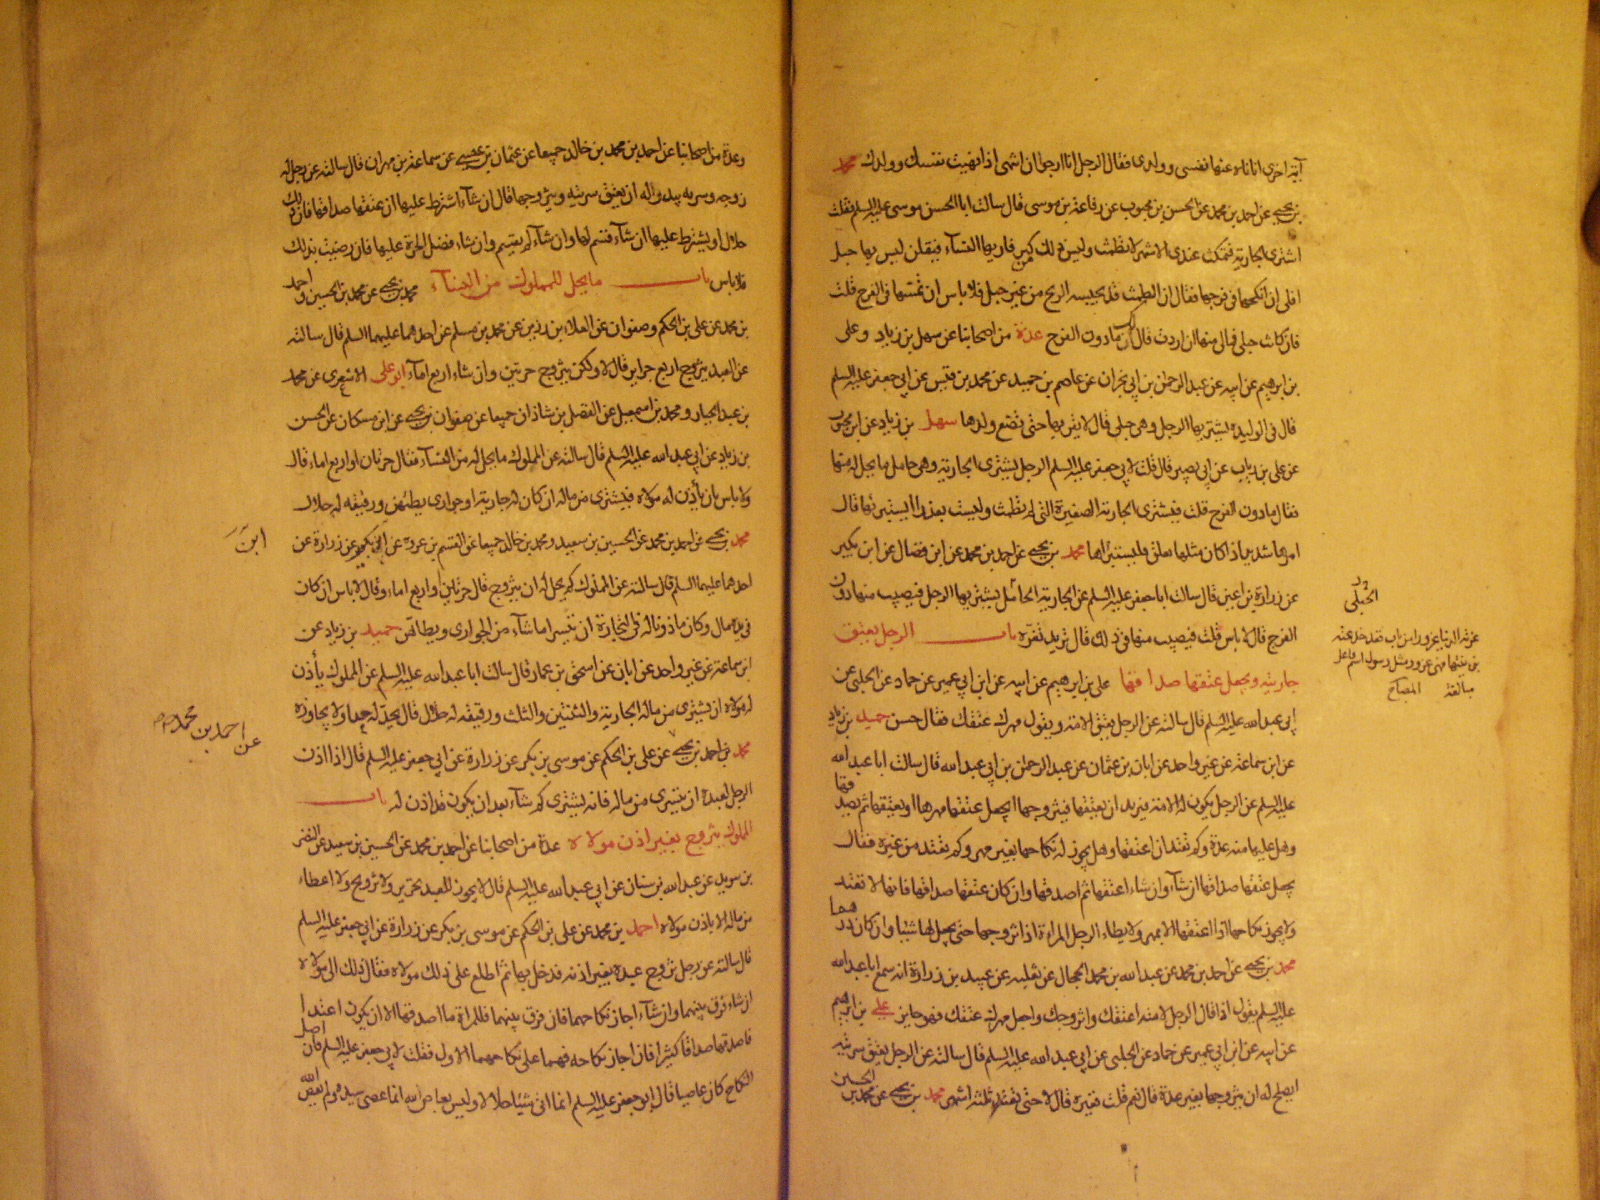 آية اخرى انا ناه عنها نفسي وولدى فقال الرجل انا ارجو ان انتهى اذا نهيت نفسك وولدك محمد
بن يحيى عن احمد بن محمد عن الحسن بن محبوب عن رفاعة بن موسى قال سالت ابا الحسن موسى عليه السلم فقلت
اشترى الجارية فتمكث عندى الاشهر لا تطمث وليس ذلك من كبر فاريها النسآء فيقلن ليس بها حبل
افلى ان انكحها فى فرجها فقال ان الطمث قد يحبسه الريح من غير حبل فلا باس ان تمسها فى الفرج قلت
فان كانت حبلى فمالى منها ان اردت قال لك ما دون الفرج عدة من اصحابنا عن سهل بن زياد وعلى
بن ابرهيم عن ابيه عن عبد الرحمن بن ابى نجران عن عاصم بن حميد عن محمد بن قيس عن ابى جعفر عليه السلم
قال فى الوليدة يشتريها الرجل وهى حبلى قال لا يقربها حتى تضع ولدها سهل بن زياد عن ابن محبوب
عن على بن رياب عن ابى بصير قال قلت لابى جعفر عليه السلم الرجل يشترى الجارية وهى حامل ما يحل له منها
فقال ما دون الفرج قلت فيشترى الجارية الصغيرة التى لم تطمث وليست بعذراء ايستبرئها قال
امرها شديد اذا كان مثلها تعلق فليستبرئها محمد بن يحيى عن احمد بن محمد عن ابن فضال عن ابن بكير
عن زرارة بن اعين قال سالت ابا جعفر عليه السلم عن الجارية الحامل يشتريها الرجل فيصيب منها دون
الفرج قال لا باس قلت فيصيب منها فى ذلك قال تريد تغره باب الرجل يعتق
جاريته ويجعل عتقها صداقها على بن ابرهيم عن ابيه عن ابن ابى عمير عن حماد عن الحلبى عن
ابى عبد الله عليه السلم قال سالته عن الرجل يعتق الامة ويقول مهرك عتقك فقال حسن حميد بن زياد
عن ابن سماعة عن غير واحد عن ابان بن عثمان عن عبد الرحمن بن ابى عبد الله قال سالت ابا عبد الله
عليه السلم عن الرجل يكون له الامة فيريد ان يعتقها فيتزوجها ايجعل عتقها مهرها او يعتقها ثم يصدقها
وهل عليها منه عدة وكم تعتد ان اعتقها وهل يجوز له نكاحها بغير مهر وكم تعتد من غيره فقال
يجعل عتقها صداقها ان شآء وان شاء اعتقها ثم اصدقها وان كان عتقها صداقها فانها لا تعتد
ولا يجوز نكاحها اذا اعتقها الا بمهر ولا يطاء الرجل المراة اذا تزوجها حتى يجعل لها شيئا وان كان درهما
محمد بن يحيى عن احمد بن محمد عن عبد الله بن محمد الحجال عن ثعلبه عن عبيد بن زرارة انه سمع ابا عبد الله
عليه السلم يقول اذا قال الرجل لامته اعتقك واتزوجك واجعل مهرك عتقك فهو جايز على بن ابرهيم
عن ابيه عن ابن ابى عمير عن حماد عن الحلبى عن ابى عبد الله عليه السلم قال سالته عن الرجل يعتق سريته
ايصلح له ان يتزوجها بغير عدة قال نعم قلت فغيره قال لا حتى تعتد ثلثة اشهر محمد بن يحيى عن محمد بن الحسين
الحبلى
مبالغة المصباح
وعدة من اصحابنا عن احمد بن محمد بن خالد جميعا عن عثمان بن عيسى عن سماعة بن مهران قال سالته عن رجل له
زوجه وسريه يبدو له ان يعتق سريته ويتزوجها قال ان شآء اشترط عليها ان عتقها صداقها فان ذلك
حلال او يشترط عليها ان شآء قسم لها وان شآء لم يقسم وان شاء فضل الحرة عليها فان رضيت بذلك
فلا باس باب ما يحل للمملوك من النسآء محمد بن يحيى عن محمد بن الحسين واحمد
بن محمد عن على بن الحكم وصفوان عن العلاء بن رزين عن محمد بن مسلم عن احدهما عليهما السلم قال سالته
عن العبد يتزوج اربع حراير قال لا ولكن يتزوج حرتين وان شاء اربع امآء ابو على الاشعرى عن محمد
بن عبد الجبار ومحمد بن اسمعيل عن الفضل بن شاذان جميعا عن صفوان بن يحيى عن ابن مسكان عن الحسن
بن زياد عن ابى عبد الله عليه السلم قال سالته عن المملوك ما يحل له من النسآء فقال حرتان او اربع اماء قال
ولا باس بان يأذن له مولاه فيشترى من ماله ان كان له جارية او جوارى يطئهن ورقيقه له حلال
محمد بن يحيى عن احمد بن محمد عن الحسين بن سعيد ومحمد بن خالد جميعا عن القسم بن عروة عن ابن بكير عن زرارة عن
احدهما عليهما السلم قال سالته عن المملوك كم يحل له ان يتزوج قال حرتين او اربع اماء وقال لا باس ان كان
فى يده مال وكان ماذونا له فى التجارة ان يتسرا ما شآء من الجوارى ويطاهن حميد بن زياد عن
ابن سماعة عن غير واحد عن ابان عن اسحق بن عمار قال سالت ابا عبد الله عليه السلم عن المملوك يأذن
له مولاه ان يشترى من ماله الجارية والثنتين والثلث ورقيقه له حلال قال يحد له حدا ولا يجاوزه
محمد بن احمد بن يحيى عن على بن الحكم عن موسى بن بكر عن زرارة عن ابى جعفر عليه السلم قال اذا اذن
الرجل لعبده ان يتسرى من ماله فانه يشترى كم شآء بعد ان يكون قد اذن له باب
المملوك يتزوج بغير اذن مولاه عدة من اصحابنا عن احمد بن محمد عن الحسين بن سعيد عن النضر
بن سويد عن عبد الله بن سنان عن ابى عبد الله عليه السلم قال لا يجوز للعبد تحرير ولا تزويج ولا اعطاء
من ماله الا باذن مولاه احمد بن محمد عن على بن الحكم عن موسى بن بكر عن زرارة عن ابى جعفر عليه السلم
قال سالته عن رجل تزوج عبده بغير اذنه فدخل بها ثم اطلع على ذلك مولاه فقال ذلك الى مولاه
ان شاء فرق بينهما وان شآء اجاز نكاحهما فان فرق بينهما فللمراة ما اصدقها الا ان يكون اعتدا
فاصدقها صداقا كثيرا فان اجاز نكاحه فهما على نكاحهما الاول فقلت لابى جعفر عليه السلم فان اصل
النكاح كان عاصيا فقال ابو جعفر عليه السلم انما اتى شيئا حلالا وليس بعاص لله انما عصى سيده ولم يعص الله
ابن
عن احمد بن محمد